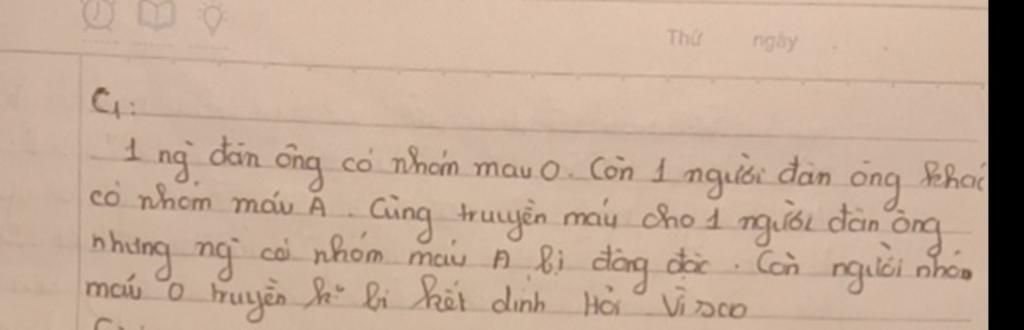 Thứ ngày
C1:
1 ng` đàn ông có nhóm mau O. Còn 1 người đàn ông khác
có nhóm máu A. Cùng truyền máu cho 1 người đàn ông
nhưng ng` có nhóm máu A bị đông đặc. Còn người nhóm
máu O truyền k° bị kết dính Hỏi Vì sao